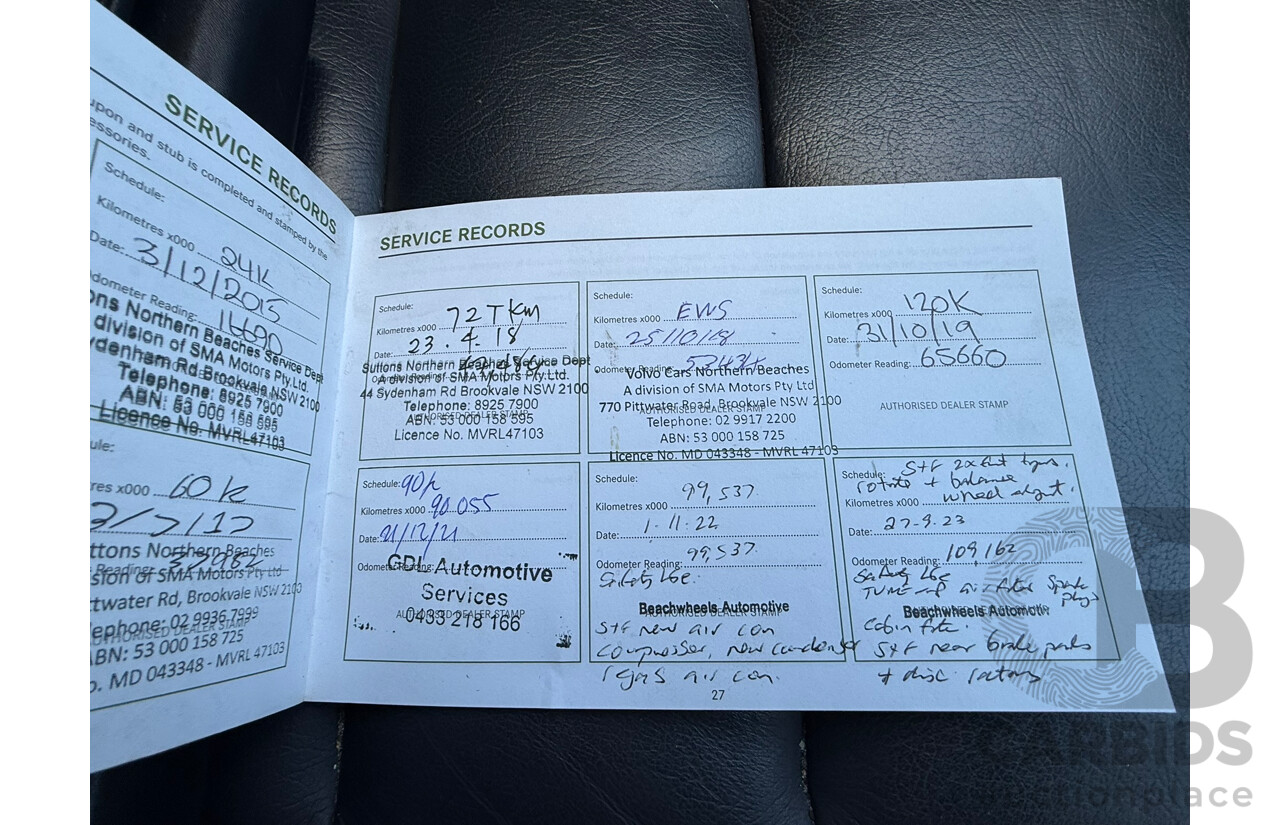 SERVICE RECORDS
upon and stub is completed and stamped by the
essories.
Schedule:
Kilometres x000 24K
Date: 3/12/2015
Odometer Reading: 16690
ons Northern Beaches Service Dept
division of SMA Motors Pty.Ltd.
ydenham Rd Brookvale NSW 2100
Telephone: 8925 7900
ABN: 53 000 158 595
Licence No. MVRL47103
ule:
res x000 60K
2/7/17
uttons Northern Beaches
Reading: 37982
sion of SMA Motors Pty Ltd
ttwater Rd, Brookvale NSW 2103
ephone: 02 9936 7999
AUTHORISED DEALER STAMP
ABN: 53 000 158 725
o. MD 043348 - MVRL 47103
SERVICE RECORDS
Schedule:
Kilometres x000 72TKm
Date: 23.4.18
Suttons Northern Beaches Service Dept
Odometer Reading:
A division of SMA Motors Pty.Ltd.
44 Sydenham Rd Brookvale NSW 2100
Telephone: 8925 7900
AUTHORISED DEALER STAMP
ABN: 53 000 158 595
Licence No. MVRL47103
Schedule:
Kilometres x000 EWS
Date: 25/10/18
Odometer Reading:
Volvo Cars Northern Beaches
A division of SMA Motors Pty Ltd
770 Pittwater Road, Brookvale NSW 2100
AUTHORISED DEALER STAMP
Telephone: 02 9917 2200
ABN: 53 000 158 725
Licence No. MD 043348 - MVRL 47103
Schedule:
Kilometres x000 120K
Date: 31/10/19
Odometer Reading: 65660
AUTHORISED DEALER STAMP
Schedule: 90k
Kilometres x000 90 055
Date: 21/12/21
Odometer Reading:
CDL Automotive
Services
AUTHORISED DEALER STAMP
0433 218 166
Schedule:
Kilometres x000 99,537
Date: 1.11.22
Odometer Reading: 99,537
Safety
Beachwheels Automotive
AUTHORISED DEALER STAMP
S+F new air con
compressor, new condenser
regas air con.
Schedule: S+F 2x front tyres,
rotate + balance
Kilometres x000 wheel
Date: 27.9.23
Odometer Reading: 109,162
Safety
Tune up air filter Spark
plugs
Beachwheels Automotiv
Cabin
S+F rear brake pads
+ disc rotors
27
CARBIDS
auctionplace